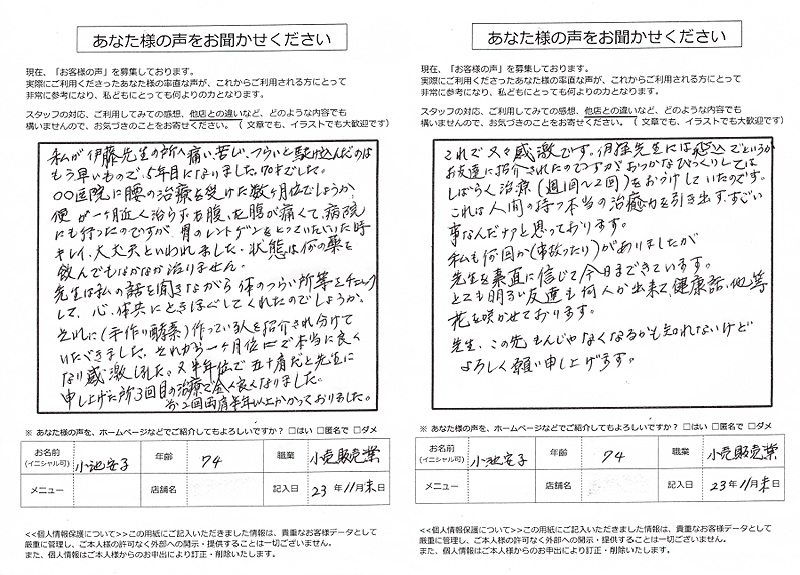 あなた様の声をお聞かせください
現在、「お客様の声」を募集しております。
実際にご利用くださったあなた様の率直な声が、これからご利用される方にとって
非常に参考になり、私どもにとっても何よりの力となります。
スタッフの対応、ご利用してみての感想、他店との違いなど、どのような内容でも
構いませんので、お気づきのことをお寄せください。（ 文章でも、イラストでも大歓迎です）
私が伊藤先生の所へ痛い、苦しい、つらいと駆け込んだのは
もう早いもので、5年目になりました。70才でした。
〇〇医院に腰の治療を受けた数ヶ月位でしょうか
便が一ヶ月近く治らず、お腹、左腹が痛くて、病院
にも行ったのですが、胃のレントゲンをとっていただいた時
キレイ、大丈夫といわれました。状態は何の薬を
飲んでもなかなか治りません。
先生は私の話を聞きながら体のつらい所等をチェック
して、心、体共にときほぐしてくれたのでしょうか。
それに（手作り酵素）作っている人を紹介され分けて
いただきました。それから一ヶ月位で本当に良く
なり感激しました。又半年位で五十肩だと先生に
申し上げた所3回目の治療で全く良くなりました。
前2回両肩半年以上かかっておりました。
※ あなた様の声を、ホームページなどでご紹介してもよろしいですか？ □はい □匿名で □ダメ
お名前 (イニシャル可) 小池安子 年齢 74 職業 小売販売業
メニュー 店舗名 記入日 23年11月末日
<<個人情報保護について>>この用紙にご記入いただきました情報は、貴重なお客様データとして
厳重に管理し、ご本人様の許可なく外部への開示・提供することは一切ございません。
また、個人情報はご本人様からのお申出により訂正・削除いたします。
あなた様の声をお聞かせください
現在、「お客様の声」を募集しております。
実際にご利用くださったあなた様の率直な声が、これからご利用される方にとって
非常に参考になり、私どもにとっても何よりの力となります。
スタッフの対応、ご利用してみての感想、他店との違いなど、どのような内容でも
構いませんので、お気づきのことをお寄せください。（ 文章でも、イラストでも大歓迎です）
これで又々感激です。伊藤先生には
お友達に紹介されたのですがおっかなびっくりしては
しばらく治療（週1回～2回）をおうけしていたのです。
これは人間の持つ本当の治癒力を引き出す、すごい
事なんだナアと思っております。
私も何回か（事故ったり）がありましたが
先生を素直に信じて今日まできています。
とても明るい友達も何人か出来て、健康話、他等
花を咲かせております。
先生、この先もんじゃなくなるかも知れないけど
よろしく願い申し上げます。
※ あなた様の声を、ホームページなどでご紹介してもよろしいですか？ □はい □匿名で □ダメ
お名前 (イニシャル可) 小池安子 年齢 74 職業 小売販売業
メニュー 店舗名 記入日 23年11月末日
<<個人情報保護について>>この用紙にご記入いただきました情報は、貴重なお客様データとして
厳重に管理し、ご本人様の許可なく外部への開示・提供することは一切ございません。
また、個人情報はご本人様からのお申出により訂正・削除いたします。